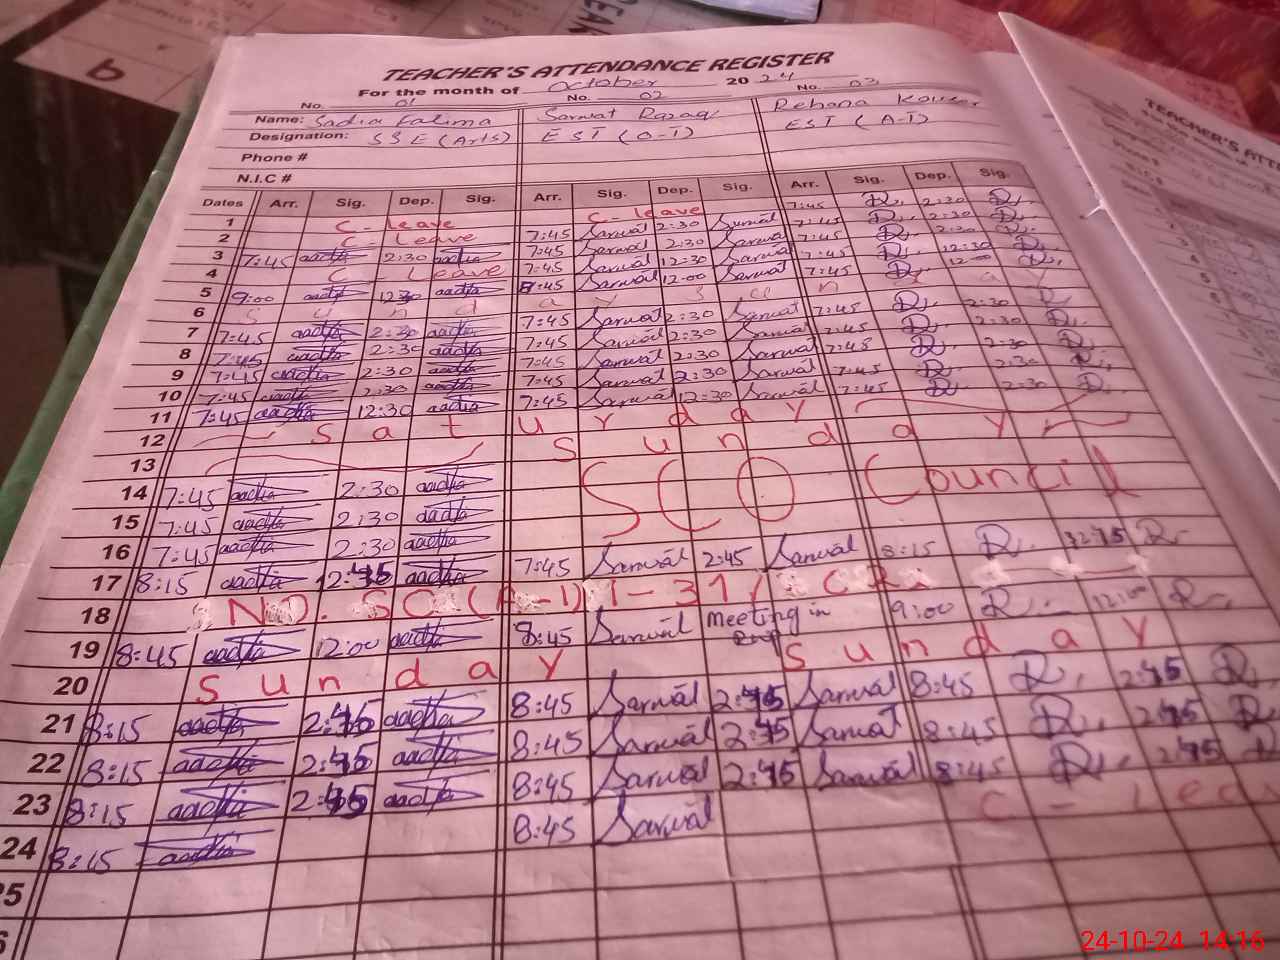 TEACHER'S ATTENDANCE REGISTER
For the month of October 2024
No. 01 No. 02 No. 03
Name: Sadia Fatima Sarwat Razaq Rehana Kouser
Designation: SSE (Arts) EST (O-T) EST (A-T)
Phone #
N.I.C #
Dates Arr. Sig. Dep. Sig. Arr. Sig. Dep. Sig. Arr. Sig. Dep. Sig.
1 C-leave C-leave 7:45 R. 2:30 R.
2 C-Leave 7:45 Sarwat 2:30 Sarwat 7:45 R. 2:30 R.
3 7:45 2:30 7:45 Sarwat 2:30 Sarwat 7:45 R. 2:30 R.
4 C-Leave 7:45 Sarwat 12:30 Sarwat 7:45 R. 12:30 R.
5 9:00 12:30 8:45 Sarwat 12:00 Sarwat 7:45 R. 12:00 R.
6 Sunday Sunday
7 7:45 2:30 7:45 Sarwat 2:30 Sarwat 7:45 R. 2:30 R.
8 7:45 2:30 7:45 Sarwat 2:30 Sarwat 7:45 R. 2:30 R.
9 7:45 2:30 7:45 Sarwat 2:30 Sarwat 7:48 R. 2:30 R.
10 7:45 2:30 7:45 Sarwat 2:30 Sarwat 7:45 R. 2:30 R.
11 7:45 12:30 7:45 Sarwat 12:30 Sarwat 7:45 R. 2:30 R.
12 Saturday
13 Sunday
14 7:45 2:30 SCO Council
15 7:45 2:30
16 7:45 2:30
17 8:15 12:45 7:45 Sarwat 2:45 Sarwat 8:15 R. R.
18 NO. SO (A-I) 1-31/
19 8:45 12:00 8:45 Sarwat Meeting in 9:00 R. 12:00 R.
20 Sunday Sunday
21 8:15 2:45 8:45 Sarwat 2:45 Sarwat 8:45 R. 2:45 R.
22 8:15 2:45 8:45 Sarwat 2:45 Sarwat 8:45 R. 2:45 R.
23 8:15 2:45 8:45 Sarwat 2:45 Sarwat 8:45 R. 2:45 R.
24 8:15 8:45 Sarwat C-Leav
25
TEACHER'S ATTE
24-10-24 14:16